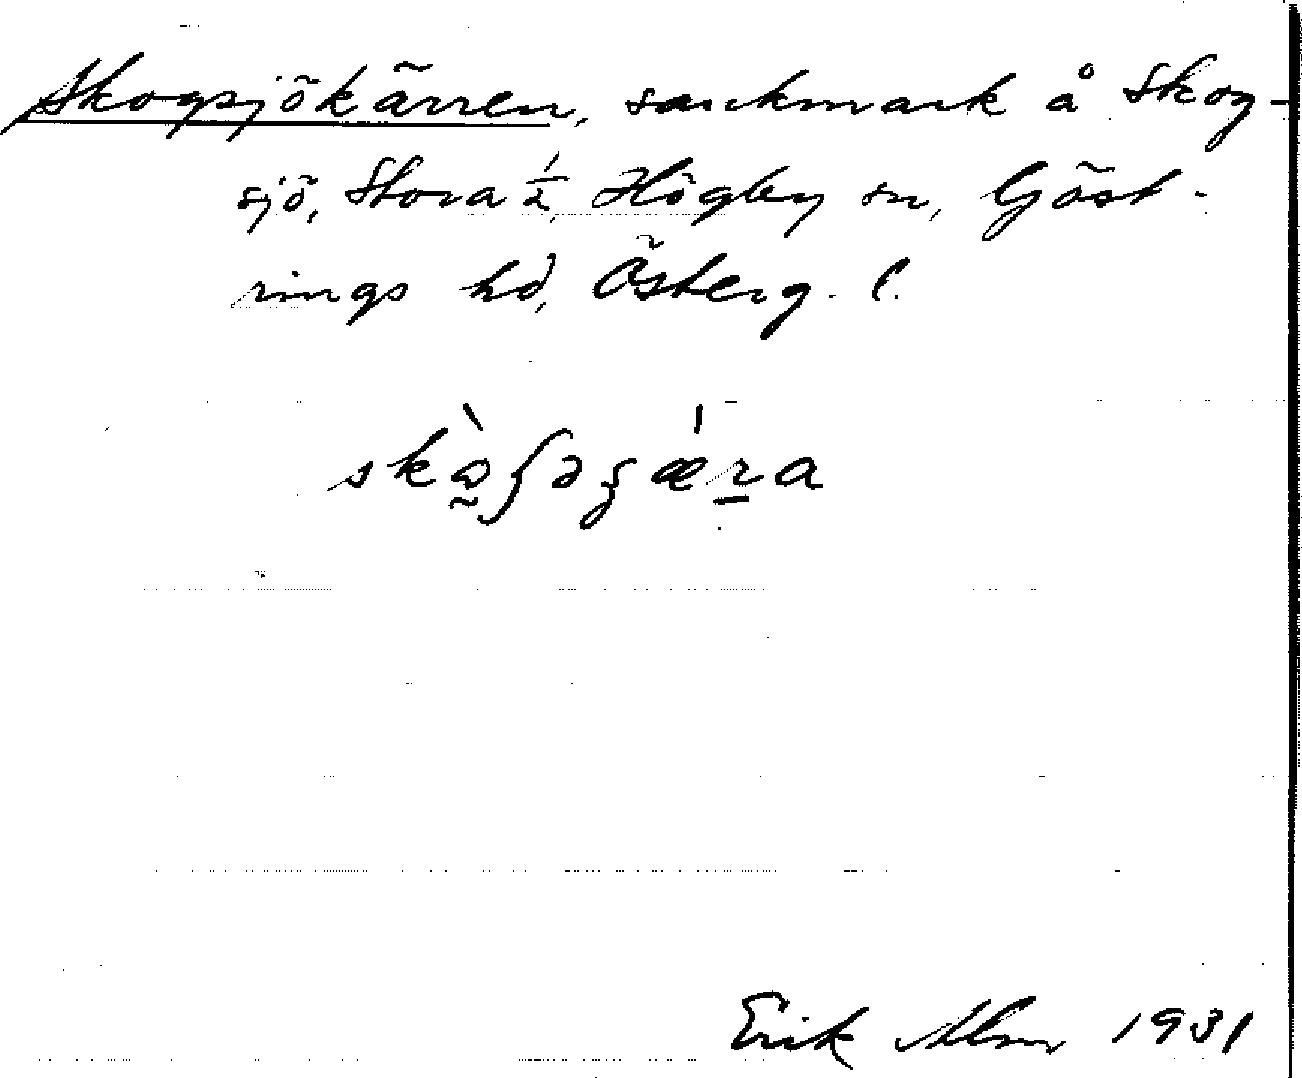 Skogsjökärren, sankmark å Skog-
sjö, Stora ½, Högby sn, Göst-
rings hd, Österg. l.
Erik Alm 1931